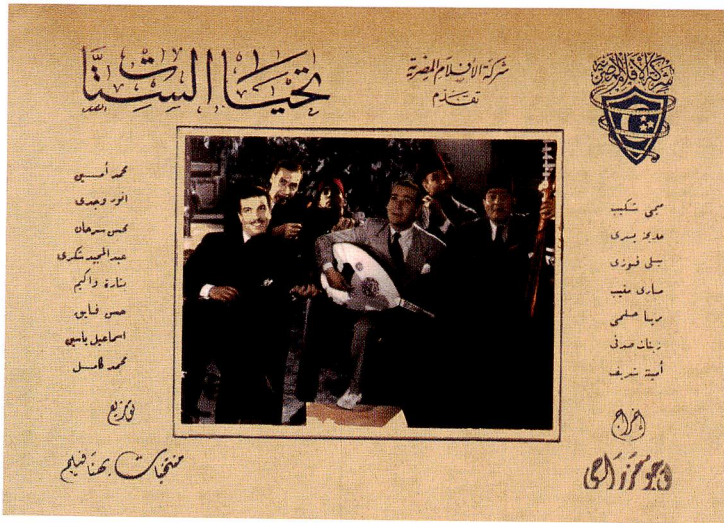 شركة الأفلام المصرية
شركة الأفلام المصرية
تقدّم
تحيا الستّات
ميمى شكيب
مديحة يسرى
ليلى فوزى
مارى منيب
زينات صدقى
أمينة شريف
محمد أمين
انور وجدى
محسن سرحان
عبد المجيد شكرى
بشارة واكيم
حسن فايق
اسماعيل ياسين
محمد كامل
اخراج
توزيع
منتخبات بهنا فيلم